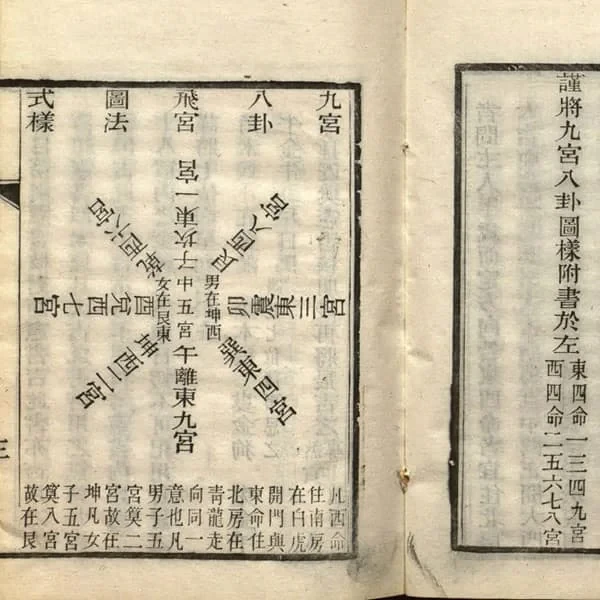 謹將九宮八卦圖樣附書於左
東四命一三四九宮
西四命二五六七八宮
九宮
八卦
飛宮
圖法
式樣
子坎東一宮
艮西八宮
卯震東三宮
巽東四宮
午離東九宮
坤西二宮
酉兌西七宮
乾西六宮
男在坤西
中五宮
女在艮東
凡西命
住南房
在白虎
開門與
東命住
北房在
青龍走
向同一
意也凡
男子五
宮筭二
宮故在
坤凡女
子五宮
筭八宮
故在艮